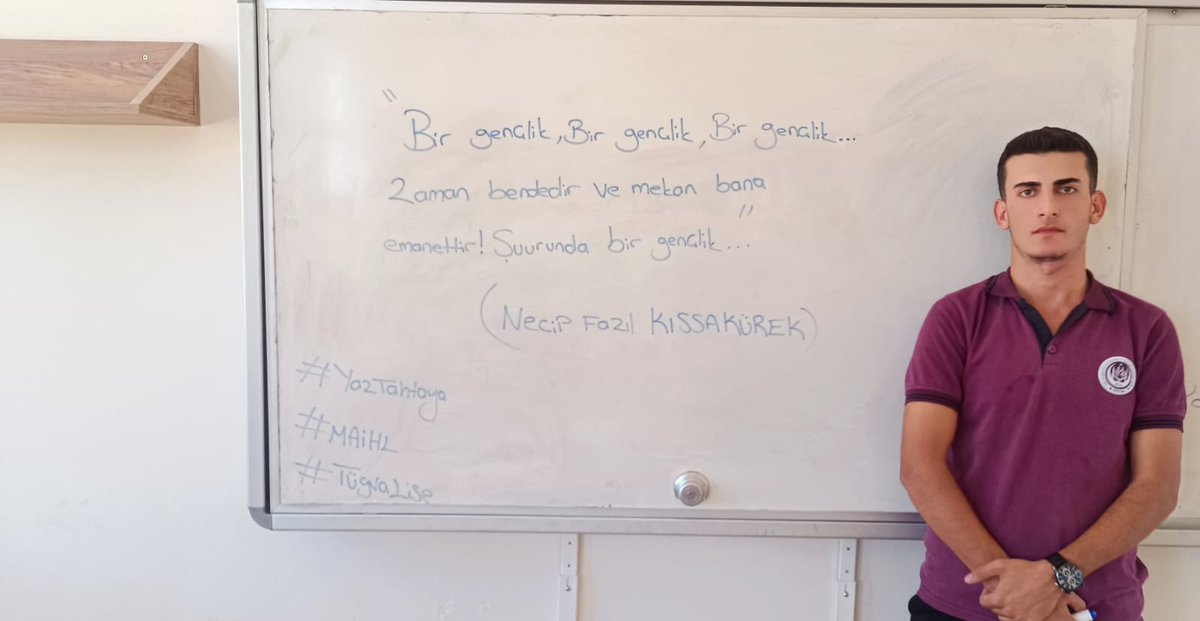 "Bir gençlik, Bir gençlik, Bir gençlik...
Zaman bendedir ve mekan bana
emanettir! Şuurunda bir gençlik..."
(Necip Fazıl KISSAKÜREK)
#YazTahtaya
#MAİHL
#TüğvaLise